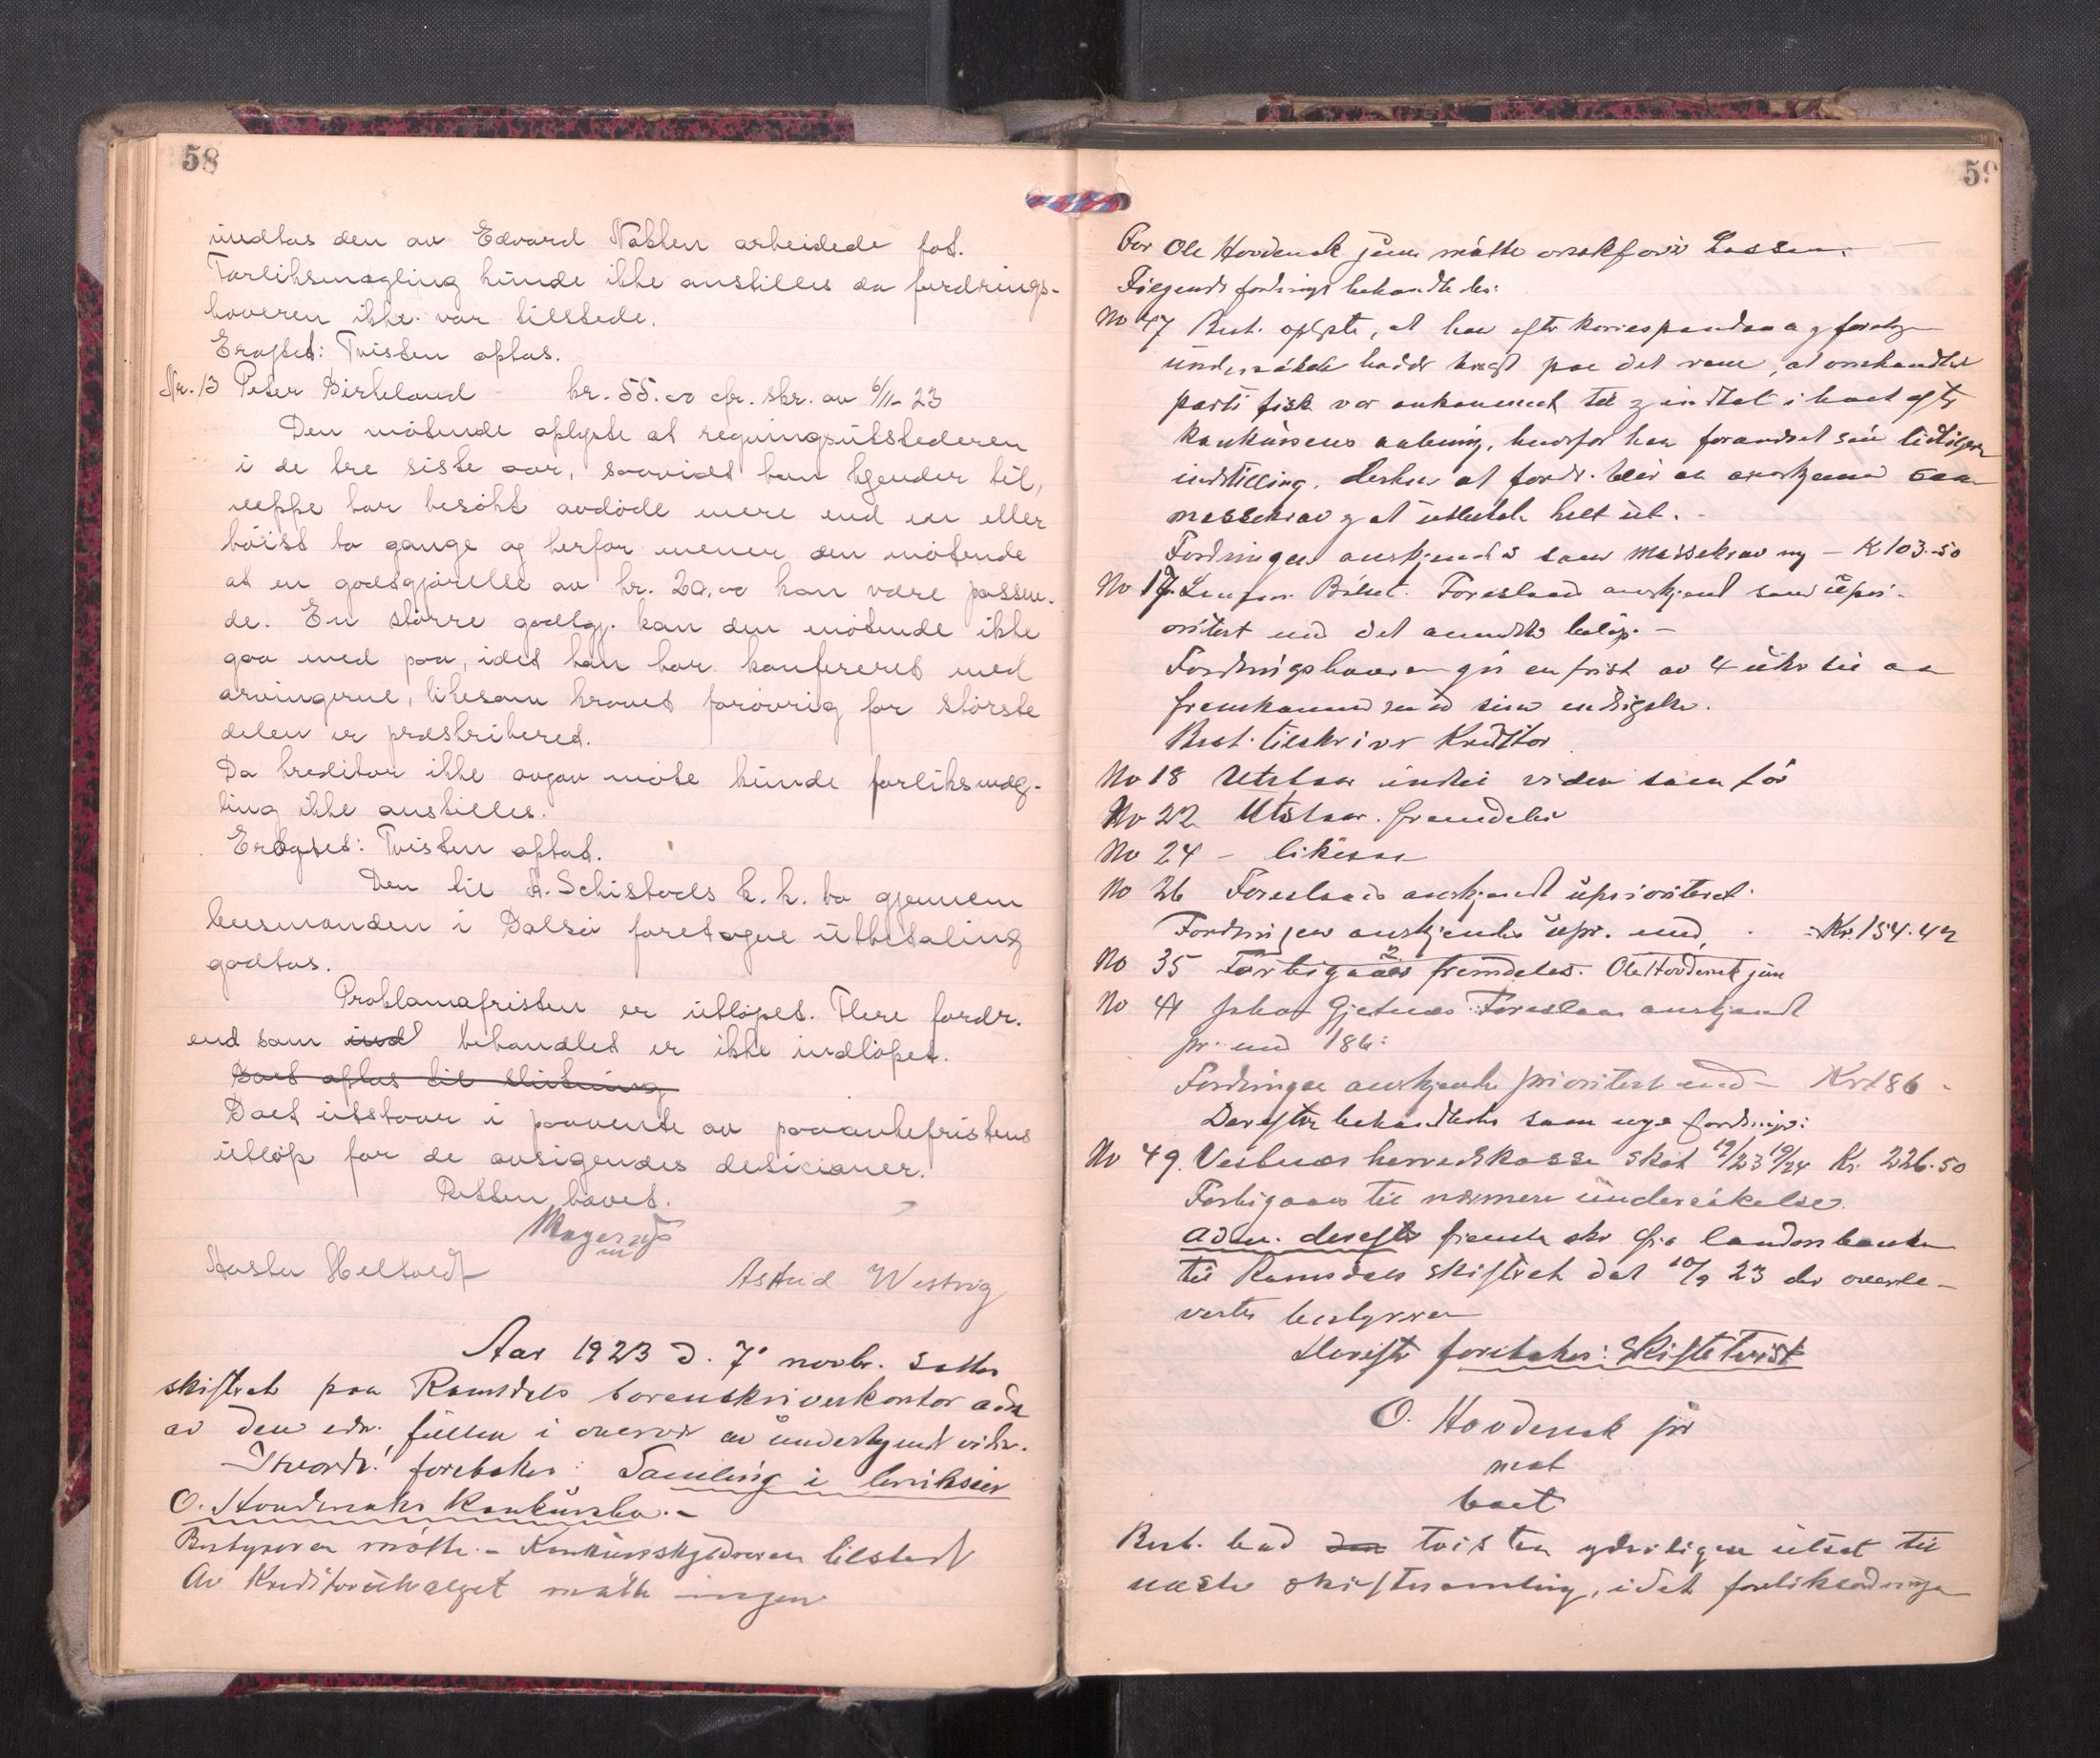 58
undtas den av Edvard Nakken arbeidede tot.
Forliksmægling kunde ikke anstilles da fordrings-
haveren ikke var tilstede.
Eragtet: Tvisten optas.
Nr. 13 Peter Birkeland kr. 55.00 cfr. skr. av 6/11 23
Den møtende oplyste at regningsutstederen
i de tre siste aar, saavidt han kjender til,
neppe har besøkt avdøde mere end en eller
høist to gange og herfor mener den møtende
at en godtgjørelse av kr. 20,00 kan være passen-
de. En større godtgj. kan den møtende ikke
gaa med paa, idet han har konfereret med
arvingerne, likesom kravet forøvrig for største
delen er præskriberet.
Da kreditor ikke avgav møte kunde forliksmæg-
ling ikke anstilles.
Eragtet: Tvisten optat.
Den til A. Schistads k.k. bo gjennem
lensmanden i Bolsø foretagne utbetaling
godtas.
Proklamafristen er utløpet. Flere fordr.
end som ind behandlet er ikke indløpet.
Boet optas til slutning
Boet utstaar i paavente av paaankefristens
utløp for de avsigendes desicioner.
Retten hævet.
Astrid Westvig
Aar 1923 d. 7 novbr. sattes
skifteret paa Romsdals sorenskriverkontor adm
av den edv. fuldm i overvær av undertegnede vidn.
Hvorda: foretokes: Samling i
O. Hovdenaks Konkursbo.-
Bestyreren møtte. - Konkursskyldneren tilstede
Av Kreditorutvalget møtte ingen
59
For Ole Hovdenak jun møtte
Følgende fordringer behandledes:
No 47 Best. oplyste, at han efter korrespondanse og foretagne
undersøkelser hadde bragt paa det rene, at omhandlede
parti fisk var ankommet til og indtat i boet efter
konkursens aabning, hvorfor han forandret sin tidligere
indstilling, derhen at fordr. blir at anerkjende som
massekrav og at utbetale helt ut.
Fordringen anerkjendes som massekrav og - K 103.50
No 17. Foreslaaes anerkjendt som upri-
oritert med det anmeldte beløp.-
Fordringshaveren gis en frist av 4 uker til aa
fremkomme med sine indsigelser.
Best. tilskriver Kreditor.
No 18 Utstaar indtil videre som før
No 22 Utstaar fremdeles
No 24 - likesaa
No 26 Foreslaaes anerkjendt uprioriteret.
Fordringen anerkjendes upr. med Kr. 154.42
No 35 Forbigaaes fremdeles. Ole Hovdenak jun
No 41 Johan Gjelnes Foreslaaes anerkjendt
pr. med 186:
Fordringen anerkjendes prioritert med - Kr 186 -
Derefter behandledes som nye fordringer:
No 49. Vestnes herredskasse skat 19/23 19/24 Kr. 226.50
Forbigaaes til nærmere undersøkelse.
Adm. derefter fremla skr fra landmandsbanken
til Romsdals skifteret dat 10/9 23 der overle-
vertes bestyreren
Derefter foretokes: Skiftetvist
O. Hovdenak jr
mot
boet
Best. bad den tvisten yderligere utsat til
næste skiftesamling, idet